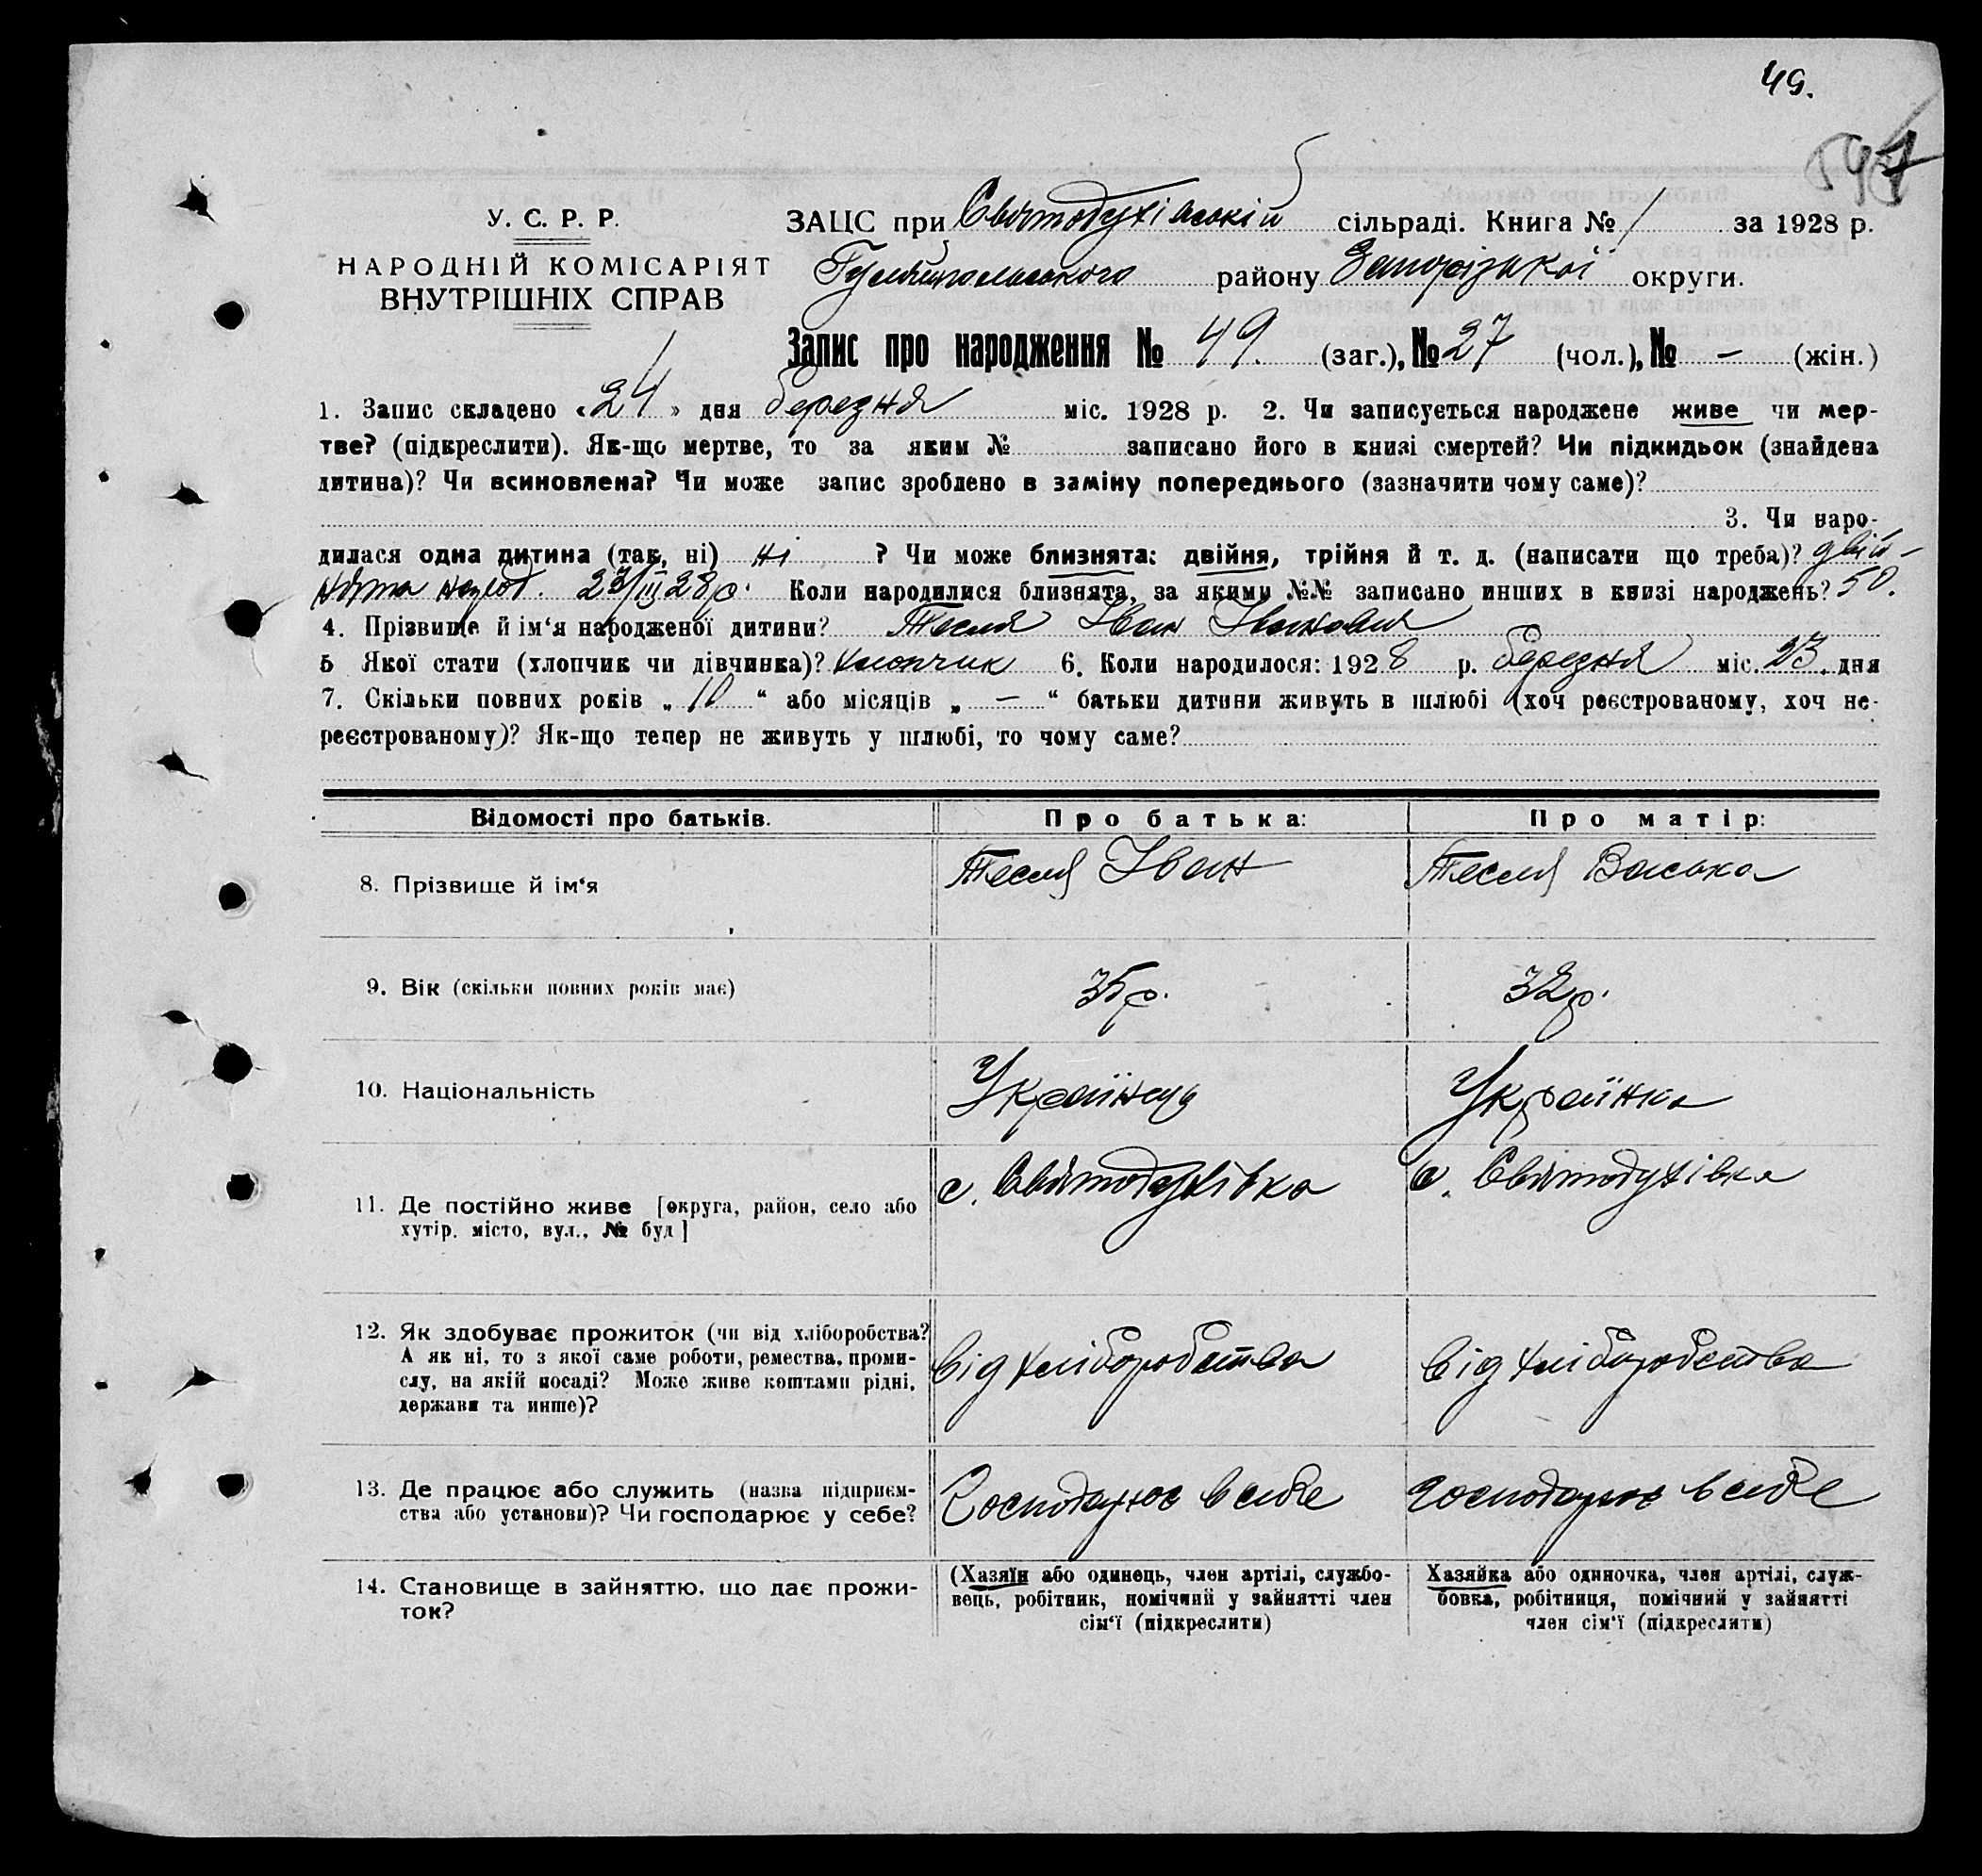 49.
У. С. Р. Р.
НАРОДНІЙ КОМІСАРІЯТ
ВНУТРІШНІХ СПРАВ
ЗАЦС при Святодухівській сільраді. Книга № 1 за 1928 р.
Гуляйпольського району Запорізької округи.
Запис про народження № 49. (заг.), № 27 (чол.), № – (жін.)
1. Запис складено «24» дня березня міс. 1928 р. 2. Чи записується народжене живе чи мер-
тве? (підкреслити). Як-що мертве, то за яким № записано його в книзі смертей? Чи підкидьок (знайдена
дитина)? Чи всиновлена? Чи може запис зроблено в заміну попереднього (зазначити чому саме)?
3. Чи наро-
дилася одна дитина (так, ні) ні ? Чи може близнята: двійня, трійня й т. д. (написати що треба)? двій-
нята народ. 23/III 28р. Коли народилися близнята, за якими №№ записано инших в книзі народжень? 50.
4. Прізвище й ім‘я народженої дитини? Тесля Іван Іванович
5 Якої стати (хлопчик чи дівчинка)? хлопчик 6. Коли народилося: 1928 р. березня міс. 23. дня
7. Скільки повних років „ 10 “ або місяців „ – “ батьки дитини живуть в шлюбі (хоч реєстрованому, хоч не-
реєстрованому)? Як-що тепер не живуть у шлюбі, то чому саме?
Відомості про батьків. Про батька: Про матір:
8. Прізвище й ім‘я Тесля Іван Тесля Васька
9. Вік (скільки повних років має) 35р. 32р.
10. Національність Українець Українка
11. Де постійно живе [округа, район, село або с. Святодухівка с. Святодухівка
хутір, місто, вул., № буд]
12. Як здобуває прожиток (чи від хліборобства?
А як ні, то з якої саме роботи, ремества, проми-
слу, на якій посаді? Може живе коштами рідні, від хліборобства від хліборобства
держави та инше)?
13. Де працює або служить (назва підприєм-
ства або установи)? Чи господарює у себе? Господарює в себе господарює в себе
14. Становище в зайняттю, що дає прожи-
ток?
(Хазяїн або одинець, член артілі, службо-
вець, робітник, помічний у зайнятті член
сім‘ї (підкреслити)
Хазяйка або одиночка, член артілі, служ-
бовка, робітниця, помічний у зайнятті
член сім‘ї (підкреслити)